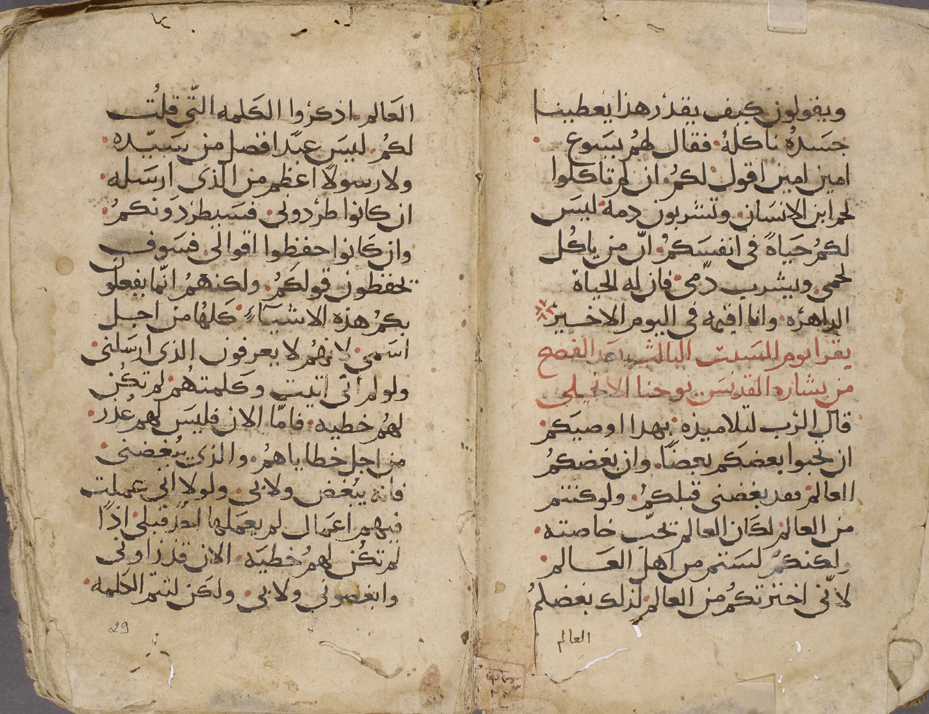 ويقولون كيف يقدر هذا يعطينا
جسده ناكله فقال لهم يسوع
امين امين اقول لكم ان لم تاكلوا
لحم ابن الانسان وتشربون دمه ليس
لكم حياة في انفسكم وان من ياكل
لحمي ويشرب دمي فان له الحياة
الداهره وانا اقيمه في اليوم الاخير
يقرا يوم السبت الثالث بعد الفصح
من بشاره القديس يوحنا الانجيلي
قال الرب لتلاميذه بهذا اوصيكم
ان تحبوا بعضكم بعضا وان بغضكم
العالم فقد بغضني قبلكم ولو كنتم
من العالم لكان العالم تحب خاصته
ولكنكم لستم من اهل العالم
لانني اخترتكم من العالم لذلك بغضكم
العالم
العالم اذكروا الكلمه التي قلت
لكم ليس عبد افضل من سيده
ولا رسولا اعظم من الذي ارسله
ان كانوا طردوني فسيطردونكم
وان كانوا حفظوا اقوالي فسوف
يحفظون قولكم ولكنهم انما يفعلون
بكم هذه الاشياء كلها من اجل
اسمي لانهم لا يعرفون الذي ارسلني
ولو لم اتي اتيت وكلمتهم لم تكن
لهم خطيه فاما الان فليس لهم عذر
من اجل خطاياهم والذي يبغضني
فانه يبغض ولابي ولولا اني عملت
فيهم اعمال لم يعملها احد قبلي اذا
لم تكن لهم خطيه الان قد راوني
وابغضوني ولابي ولكن لتتم الكلمه
29